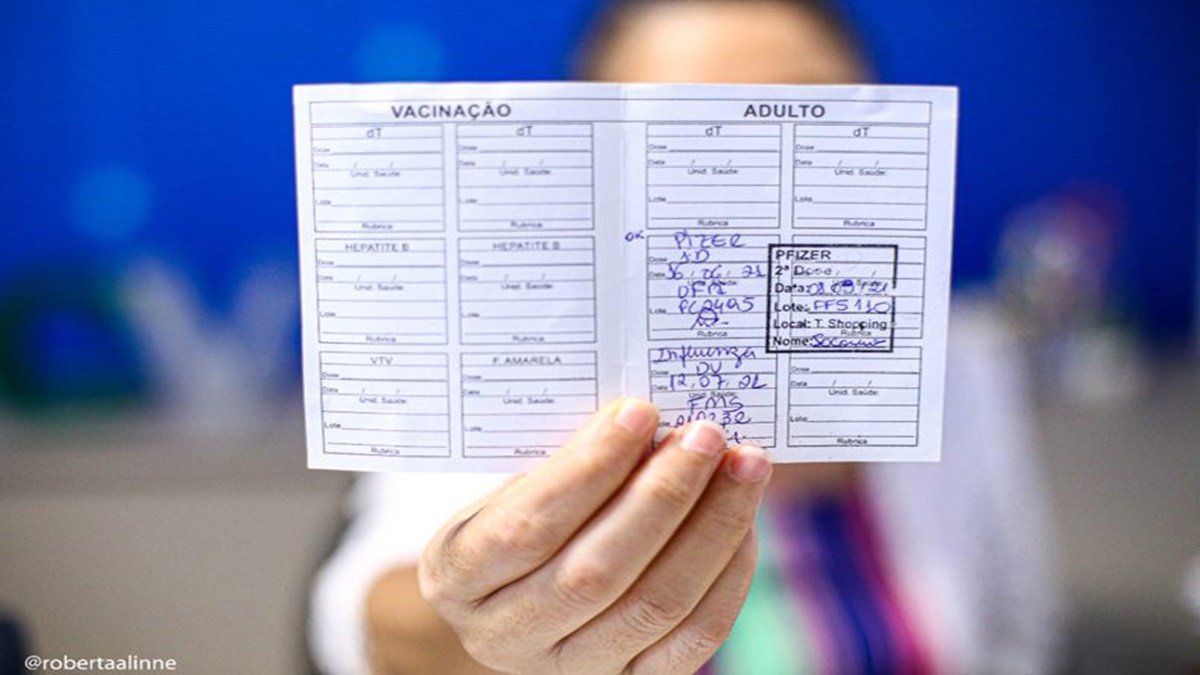 VACINAÇÃO
ADULTO
dT
Dose
Data / /
Unid. Saúde:
Lote
Rubrica
dT
Dose
Data / /
Unid. Saúde:
Lote
Rubrica
dT
Dose
Data / /
Unid. Saúde:
Lote
Rubrica
dT
Dose
Data / /
Unid. Saúde:
Lote
Rubrica
HEPATITE B
Dose
Data / /
Unid. Saúde:
Lote
Rubrica
HEPATITE B
Dose
Data / /
Unid. Saúde:
Lote
Rubrica
OK
PIZER
Dose 1D
Data 16, 06, 21
Lote
Rubrica
PFIZER
2ª Dose
Data:
Lote: FF5110
Local: T. Shopping
Nome: Socorro
Rubrica
VTV
Dose
Data / /
Unid. Saúde:
Lote
Rubrica
F. AMARELA
Dose
Data / /
Unid. Saúde:
Lote
Rubrica
Influenza
Dose DU
Data 12, 07, 21
Unid. Saúde:
FMS
Dose
Data / /
Unid. Saúde:
Lote
Rubrica
@robertaalinne